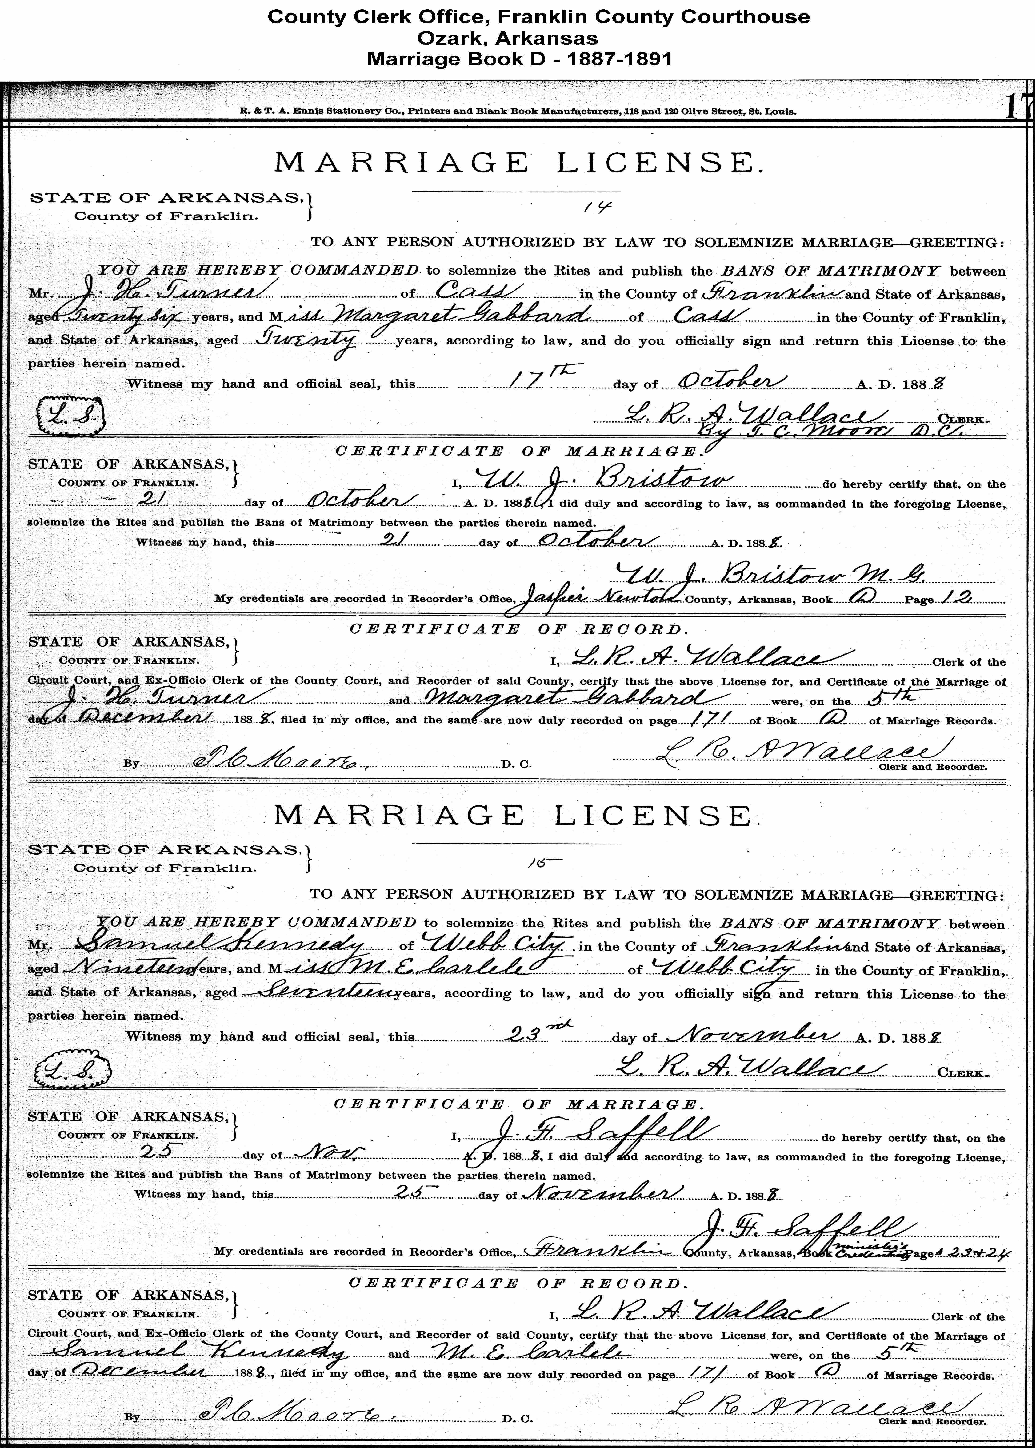 County Clerk Office, Franklin County Courthouse
Ozark, Arkansas
Marriage Book D - 1887-1891
R. & T. A. Ennis Stationery Co., Printers and Blank Book Manufacturers, 118 and 120 Olive Street, St. Louis.
17
MARRIAGE LICENSE.
STATE OF ARKANSAS, }
County of Franklin.
14
TO ANY PERSON AUTHORIZED BY LAW TO SOLEMNIZE MARRIAGE—GREETING:
YOU ARE HEREBY COMMANDED to solemnize the Rites and publish the BANS OF MATRIMONY between
Mr. J. H. Turner of Cass in the County of Franklin and State of Arkansas,
aged Twenty Six years, and Miss Margaret Gabbard of Cass in the County of Franklin,
and State of Arkansas, aged Twenty years, according to law, and do you officially sign and return this License to the
parties herein named.
Witness my hand and official seal, this 17th day of October A. D. 1888
L. S.
L. R. A. Wallace CLERK.
By T. C. Moore D.C.
CERTIFICATE OF MARRIAGE.
STATE OF ARKANSAS, }
COUNTY OF FRANKLIN.
I, W. J. Bristow do hereby certify that, on the
21 day of October A. D. 1888, I did duly and according to law, as commanded in the foregoing License,
solemnize the Rites and publish the Bans of Matrimony between the parties therein named.
Witness my hand, this 21 day of October A. D. 1888.
W. J. Bristow M. G.
My credentials are recorded in Recorder's Office, Newton County, Arkansas, Book D Page 12
CERTIFICATE OF RECORD.
STATE OF ARKANSAS, }
COUNTY OF FRANKLIN.
I, L. R. A. Wallace Clerk of the
Circuit Court, and Ex-Officio Clerk of the County Court, and Recorder of said County, certify that the above License for, and Certificate of the Marriage of
J. H. Turner and Margaret Gabbard were, on the 5th
day of December 1888. filed in my office, and the same are now duly recorded on page 171 of Book D of Marriage Records.
By T. C. Moore, D. C. L. R. A Wallace
Clerk and Recorder.
MARRIAGE LICENSE.
STATE OF ARKANSAS, }
County of Franklin.
15
TO ANY PERSON AUTHORIZED BY LAW TO SOLEMNIZE MARRIAGE—GREETING:
YOU ARE HEREBY COMMANDED to solemnize the Rites and publish the BANS OF MATRIMONY between
Mr. Samuel Kennedy of Webb City in the County of Franklin and State of Arkansas,
aged Nineteen years, and Miss M. E. Carlele of Webb City in the County of Franklin,
and State of Arkansas, aged Seventeen years, according to law, and do you officially sign and return this License to the
parties herein named.
Witness my hand and official seal, this 23rd day of November A. D. 1888
L. S.
L. R. A. Wallace CLERK.
CERTIFICATE OF MARRIAGE.
STATE OF ARKANSAS, }
COUNTY OF FRANKLIN.
I, J. F. Saffell do hereby certify that, on the
25 day of Nov. A. D. 1888, I did duly and according to law, as commanded in the foregoing License,
solemnize the Rites and publish the Bans of Matrimony between the parties therein named.
Witness my hand, this 25 day of November A. D. 1888
J. F. Saffell
My credentials are recorded in Recorder's Office, Franklin County, Arkansas, Book Minister's Credentials Pages 23+24
CERTIFICATE OF RECORD.
STATE OF ARKANSAS, }
COUNTY OF FRANKLIN.
I, L. R. A Wallace Clerk of the
Circuit Court, and Ex-Officio Clerk of the County Court, and Recorder of said County, certify that the above License for, and Certificate of the Marriage of
Samuel Kennedy and M. E. Carlele were, on the 5th
day of December 1888., filed in my office, and the same are now duly recorded on page 171 of Book D of Marriage Records.
By T. C. Moore. D. C. L R A Wallace
Clerk and Recorder.